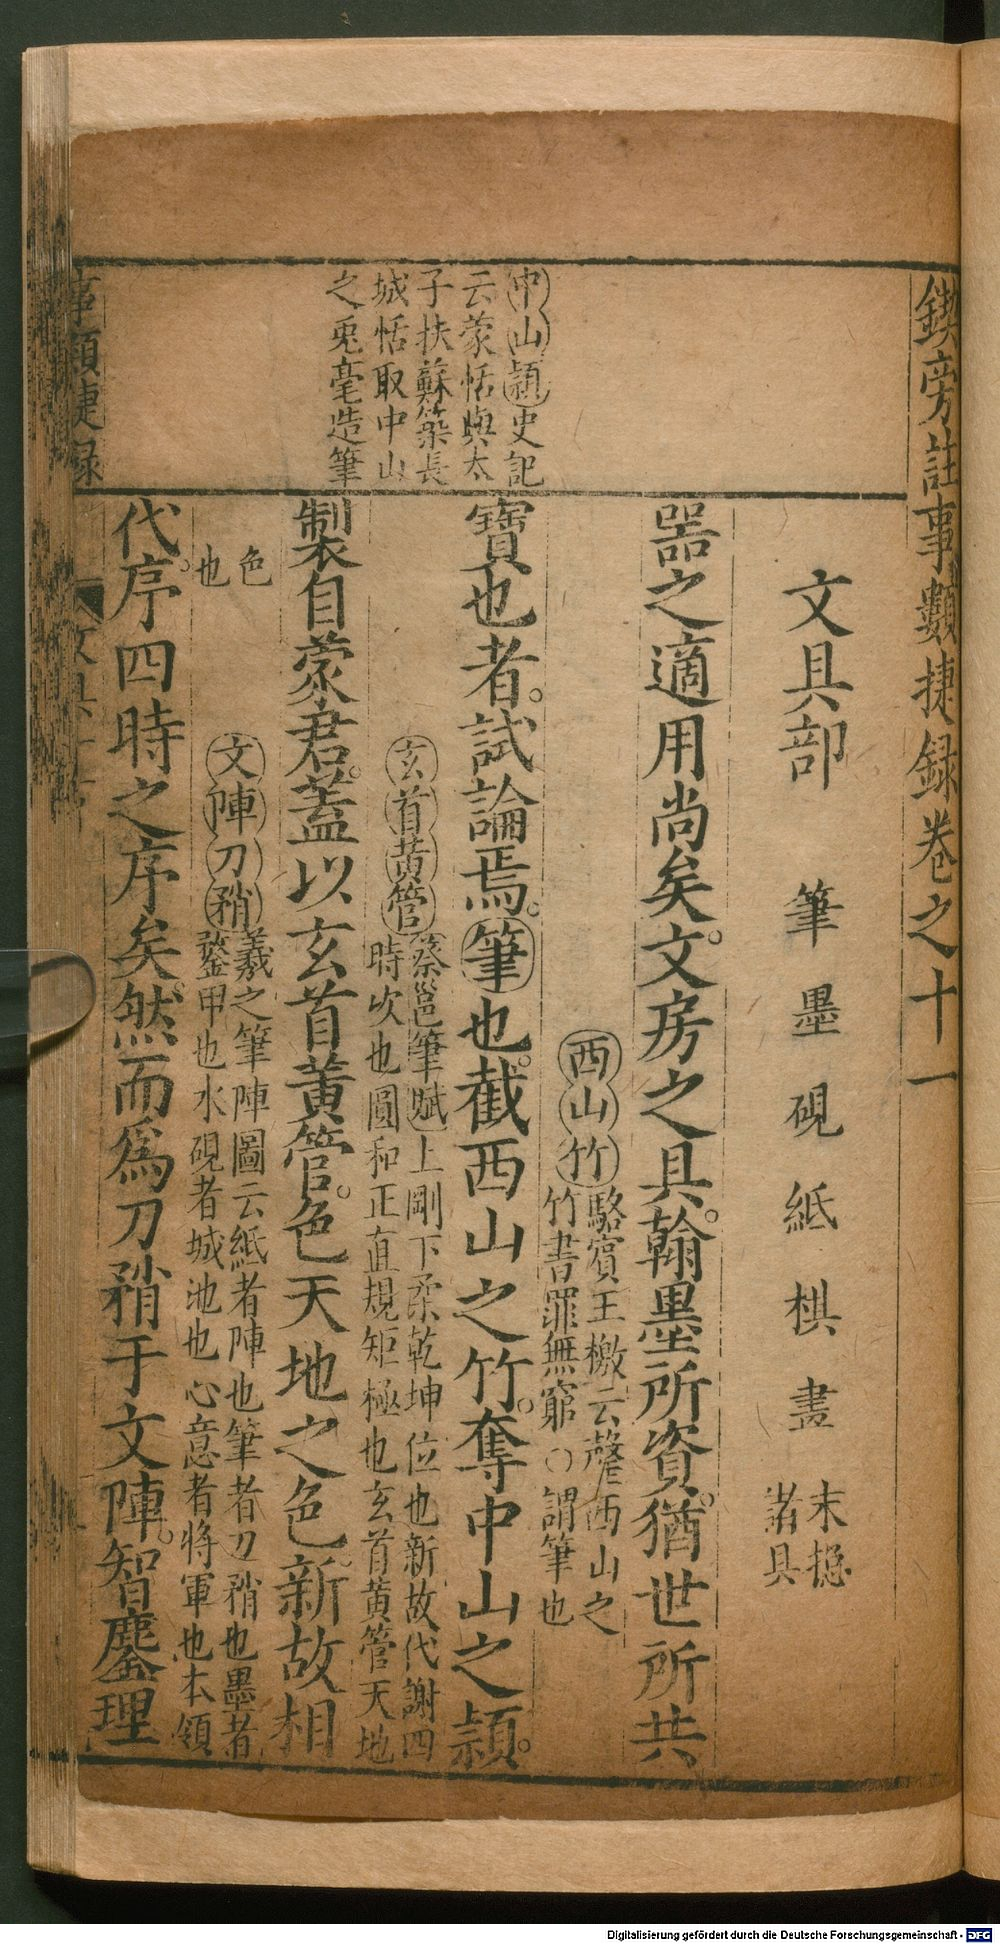 鍥旁註事類捷録卷之十一
文具部 筆 墨 硯 紙 棋 畫 末摠
諸具
中山穎史記
云蒙恬與太
子扶蘇築長
城恬取中山
之兎毫造筆
器之適用尚矣文房之具翰墨所資猶世所共
西山竹駱賓王檄云罄西山之
竹書罪無窮○謂筆也
寶也者試論焉筆也截西山之竹奪中山之穎
玄首黄管蔡邕筆賦上剛下柔乾坤位也新故代謝四
時次也圓和正直規矩極也玄首黄管天地
製自蒙君蓋以玄首黄管色天地之色新故相
色
也
文陣刀矟羲之筆陣圖云紙者陣也筆者刀矟也墨者
鍪甲也水硯者城池也心意者將軍也本領
代序四時之序矣然而爲刀矟于文陣智鏖理
事類捷録
Digitalisierung gefördert durch die Deutsche Forschungsgemeinschaft - DFG